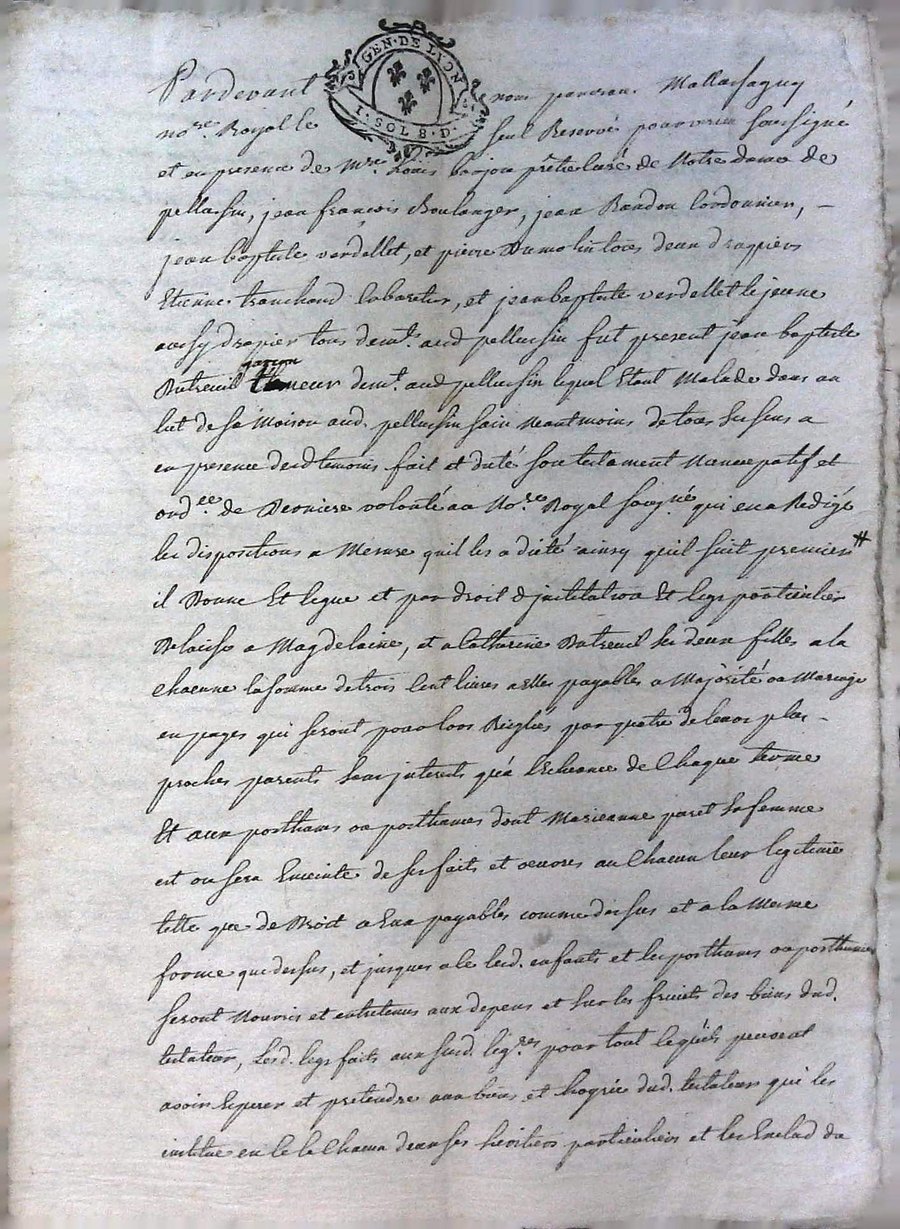 GEN · DE LION
I · SOL 8 · D ·
Pardevant nous pancrau Mallassagny
no.re Royal le seul Reservé pour soussigné
et en presence de M.re Louis barjon prêtre curé de Notre dame de
pellussin, jean francois Boulanger, jean Bandon Cordonnier, –
jean baptiste verdellet, et pierre Dumolin tous deux drappiers
Etienne tranchand Cabaretier, et jean baptiste verdellet le jeune
aussy drapier tous demt. aud pellussin fut present jean baptiste
Dutreuil garçon demt. aud pellussin lequel Etant Malade dans un
lict de sa Maison aud. pellussin sain Neantmoins de tous ses sens a
en presence desd temoins fait et dicté son testament Nuncupatif et
ord.ee de Derniere volonté au No.re Royal sousigné qui en a Redigé
les dispositions a Mesure quil les a dicté ainsy quil suit premiert
il Donne Et legue et par droit d jnstitution Et legs particulier
Delaisse a Magdelaine, et a Catharine Dutreuil ses deux filles a la
chacune la somme de trois Cent livres a Elles payables a Majorité ou Mariage
en payes qui seront pour lors Reiglées par quatre de leurs plus –
proches parents sans jnterests qu'a l'Echeance de Chaque terme
Et aux posthumes ou posthumes dont Marieanne paret sa femme
est ou sera Enceinte de ses faits et oeuvres au Chacun leur legitime
telle que de Droit a Eux payables comme dessus et a la Mesme
forme que dessus, et jusques a ce lesd. enfants et les posthumes ou posthumes
seront Nourris et entretenus aux depens et sur les fruicts des biens dud.
testateur, Lesd. legs faits aux susd. leg.res pour tout ce qu'ils peuvent
avoir Esperer et pretendre aux biens et hoyrie dud. testateur qui les
institue en ce le Chacun deux ses heritiers particuliers et les Exclud du